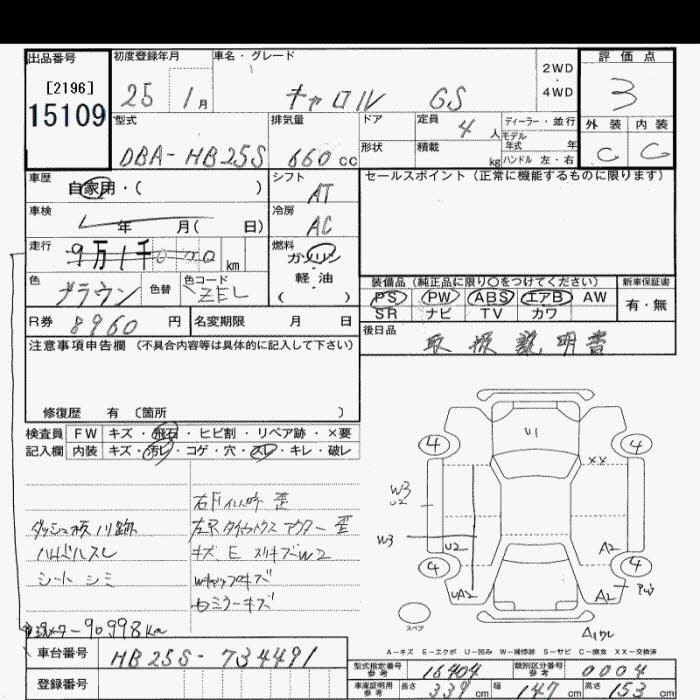 出品番号
[2196]
15109
初度登録年月
25 1月
車名・グレード
キャロル GS
2WD
4WD
評価点
3
外装 内装
C C
型式
DBA-HB25S
排気量
660cc
ドア
形状
定員
4人
積載
kg
ディーラー・並行
モデル年式 年
ハンドル 左・右
車歴
自家用・( )
シフト
AT
セールスポイント (正常に機能するものに限ります)
車検
年 月( 日)
冷房
AC
走行
9万1千000km
燃料
ガソリン
軽油
( )
色
ブラウン
色替
色コード
ZEL
装備品 (純正品に限り○をつけてください)
PS PW ABS エアB AW
SR ナビ TV カワ
新車保証書
有・無
R券
8960円
名変期限 月 日
後日品
取扱説明書
注意事項申告欄 (不具合内容等は具体的に記入して下さい)
修復歴 有 〔箇所 〕
検査員
記入欄
FW キズ・飛石・ヒビ割・リペア跡・×要
内装 キズ・汚レ・コゲ・穴・スレ・キレ・破レ
ハンドルスレ
シート シミ
キズ E スリキズW2
90998km
U1
XX
4
4
W3
U2
W3
U2
A2
4
4
UA2
A2
スペア
A-キズ E-エクボ U-凹み W-補修跡 S-サビ C-腐食 XX-交換済
車台番号
HB25S-734491
登録番号
型式指定番号
参考
16404
類別区分番号
参考
0004
車庫証明用
参考
長さ 339cm 幅 147cm 高さ 153cm